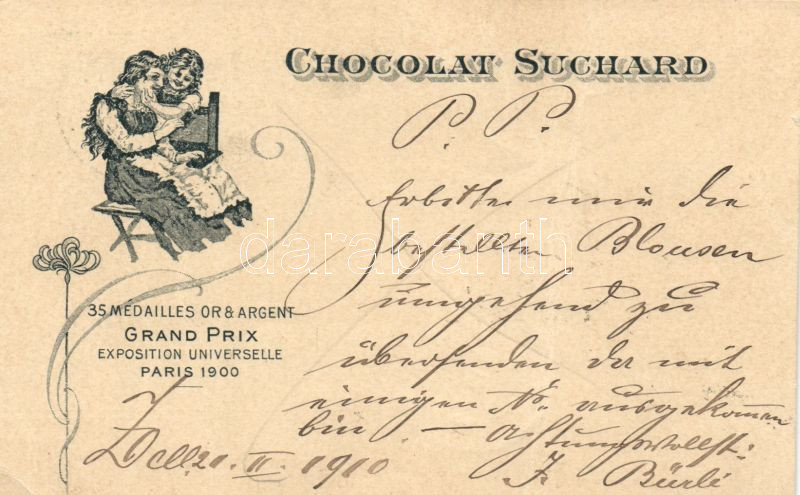 CHOCOLAT SUCHARD
P. P.
Erbitte mir die
bestellten Blousen
umgehend zu
übersenden da mit
einigen No. ausgekommen
bin — Achtungsvollst:
J. Bürli
Zell 21. II. 1910
35 MEDAILLES OR & ARGENT
GRAND PRIX
EXPOSITION UNIVERSELLE
PARIS 1900
darabanth